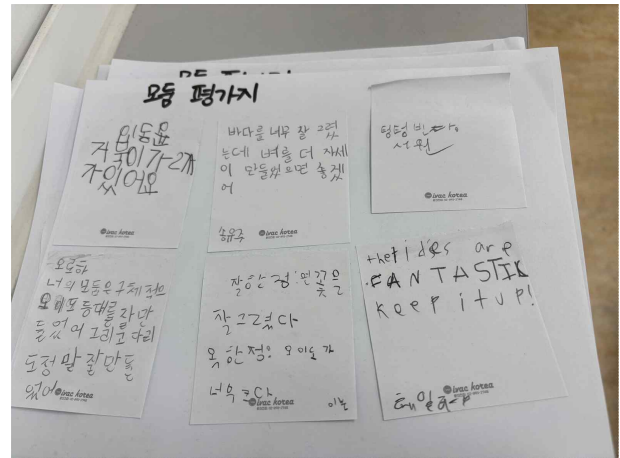 모둠 평가지
임동윤
거북이가 2개
가 있어요
바다를 너무 잘 그렸
는데 벼를 더 자세
이 만들었으면 좋겠
어
송유주
ivac korea
텅텅 빈다.
서원
ivac korea
오로하
너의 모둠은 구체적으
오이도등대를 잘 만
들었어 그리고 다리
도 정말 잘 만들
었어
ivac korea
잘한점: 연꽃을
잘 그렸다
못한점: 오이도가
너무 크다
ivac korea
their ides are
FANTASTIK
keep it up!
ivac korea